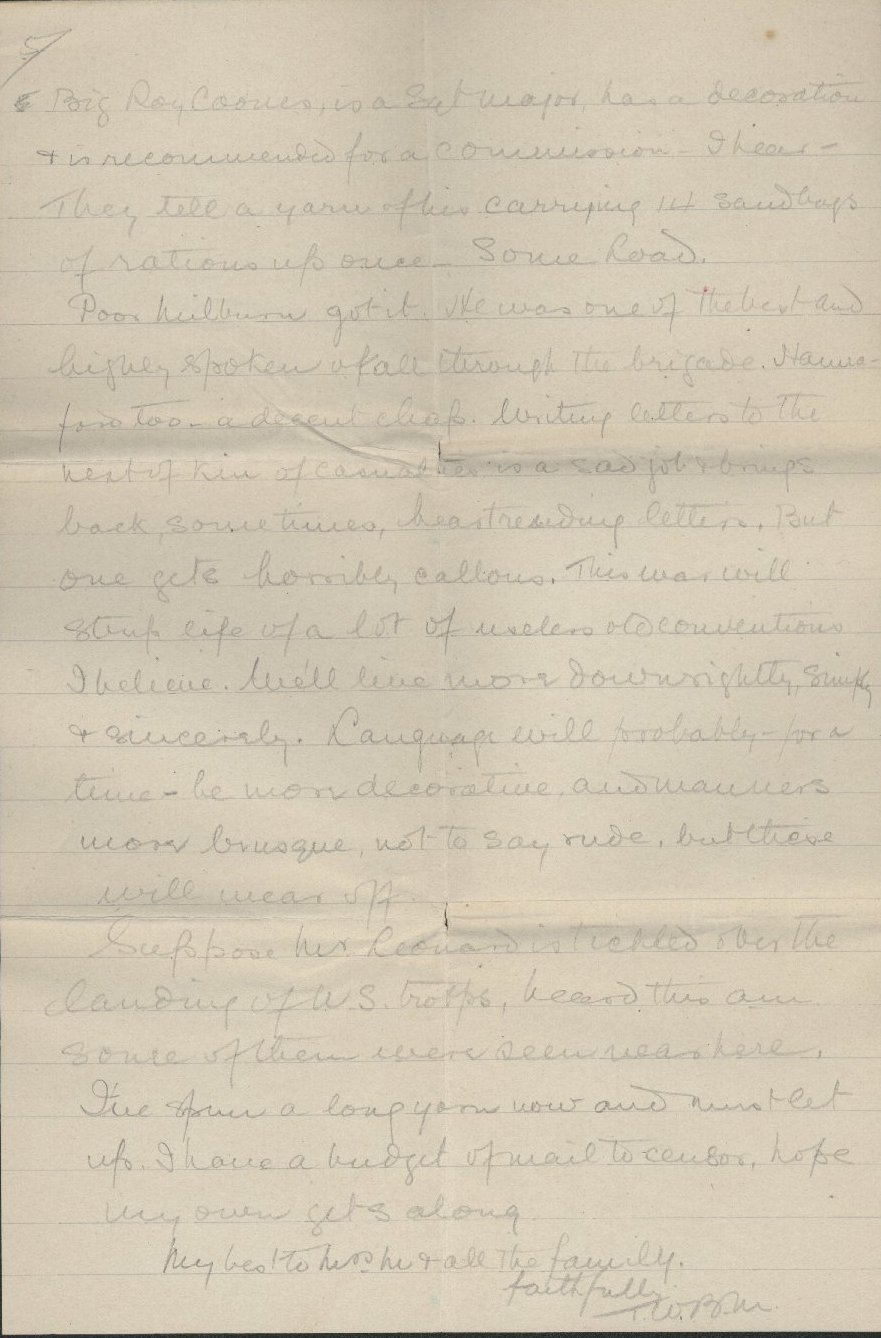 5/
Big Roy Coones, is a Sgt major, has a decoration
& is recommended for a commission - I hear -
They tell a yarn of his carrying 14 sandbags
of rations up once - Some Load.
Poor Milburn got it. He was one of the best and
highly spoken of all through the brigade. Hanna-
ford too - a decent chap. Writing letters to the
next of kin of casualties is a sad job & brings
back, sometimes, heartrending letters. But
one gets horribly callous. This war will
strip life of a lot of useless old conventions
I believe. We'll live more downrightly, simply
& sincerely. Language will probably - for a
time - be more decorative, and manners
more brusque, not to say rude, but these
will wear off.
Suppose Mr. Leonard is tickled over the
landing of U.S. troops, heard this am
some of them were seen near here.
I've spun a long yarn now and must let
up. I have a budget of mail to censor, hope
my own gets along
My best to Mrs M & all the family.
faithfully